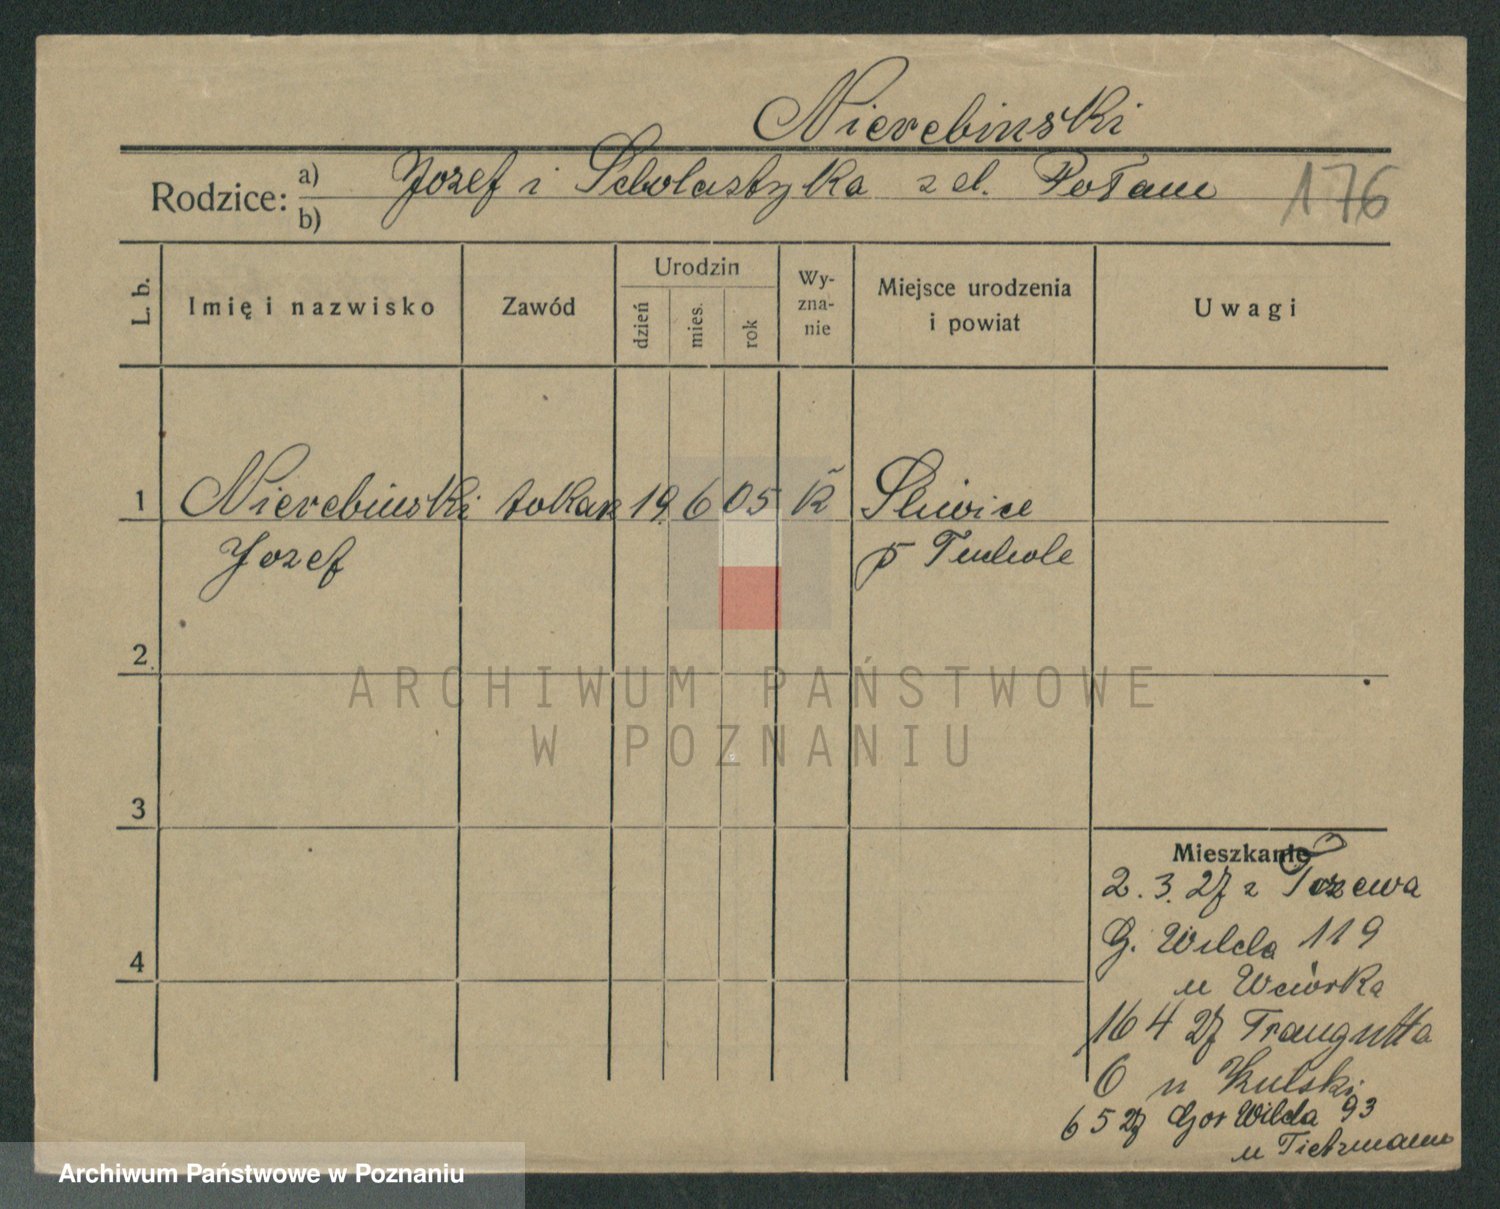 Nierebinski
Rodzice:
a) Jozef i Scholastyka z d.
b)
176
L. b.
Imię i nazwisko
Zawód
Urodzin
dzień
mies.
rok
Wy-
zna-
nie
Miejsce urodzenia
i powiat
Uwagi
1 Nierebinski tokarz 19. 6 05 k Sliwice
Jozef p Tuchole
2
3
4
Mieszkanie
2. 3. 27 z Tczewa
G. Wilda 119
u Wciórka
16 4 27 Traugutta
6 u Kulski
6 5 27 Gor Wilda 93
u Tietzmann
ARCHIWUM PAŃSTWOWE
W POZNANIU
Archiwum Państwowe w Poznaniu